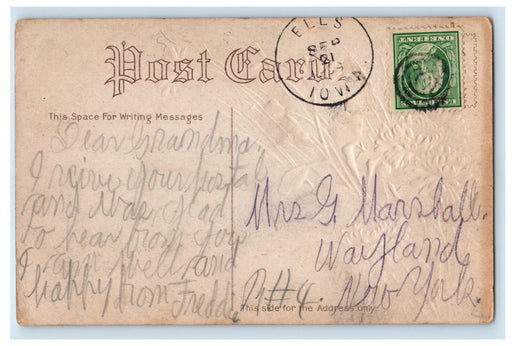 Post Card
ELLS
SEP
21
IOWA
This Space For Writing Messages
Dear Grandma.
I recive your postal
and was glad
to hear from you
I am well and
happy from Fredd
Mrs G. Marshall.
Wayland,
R#4. New York.
This side for the Address only.